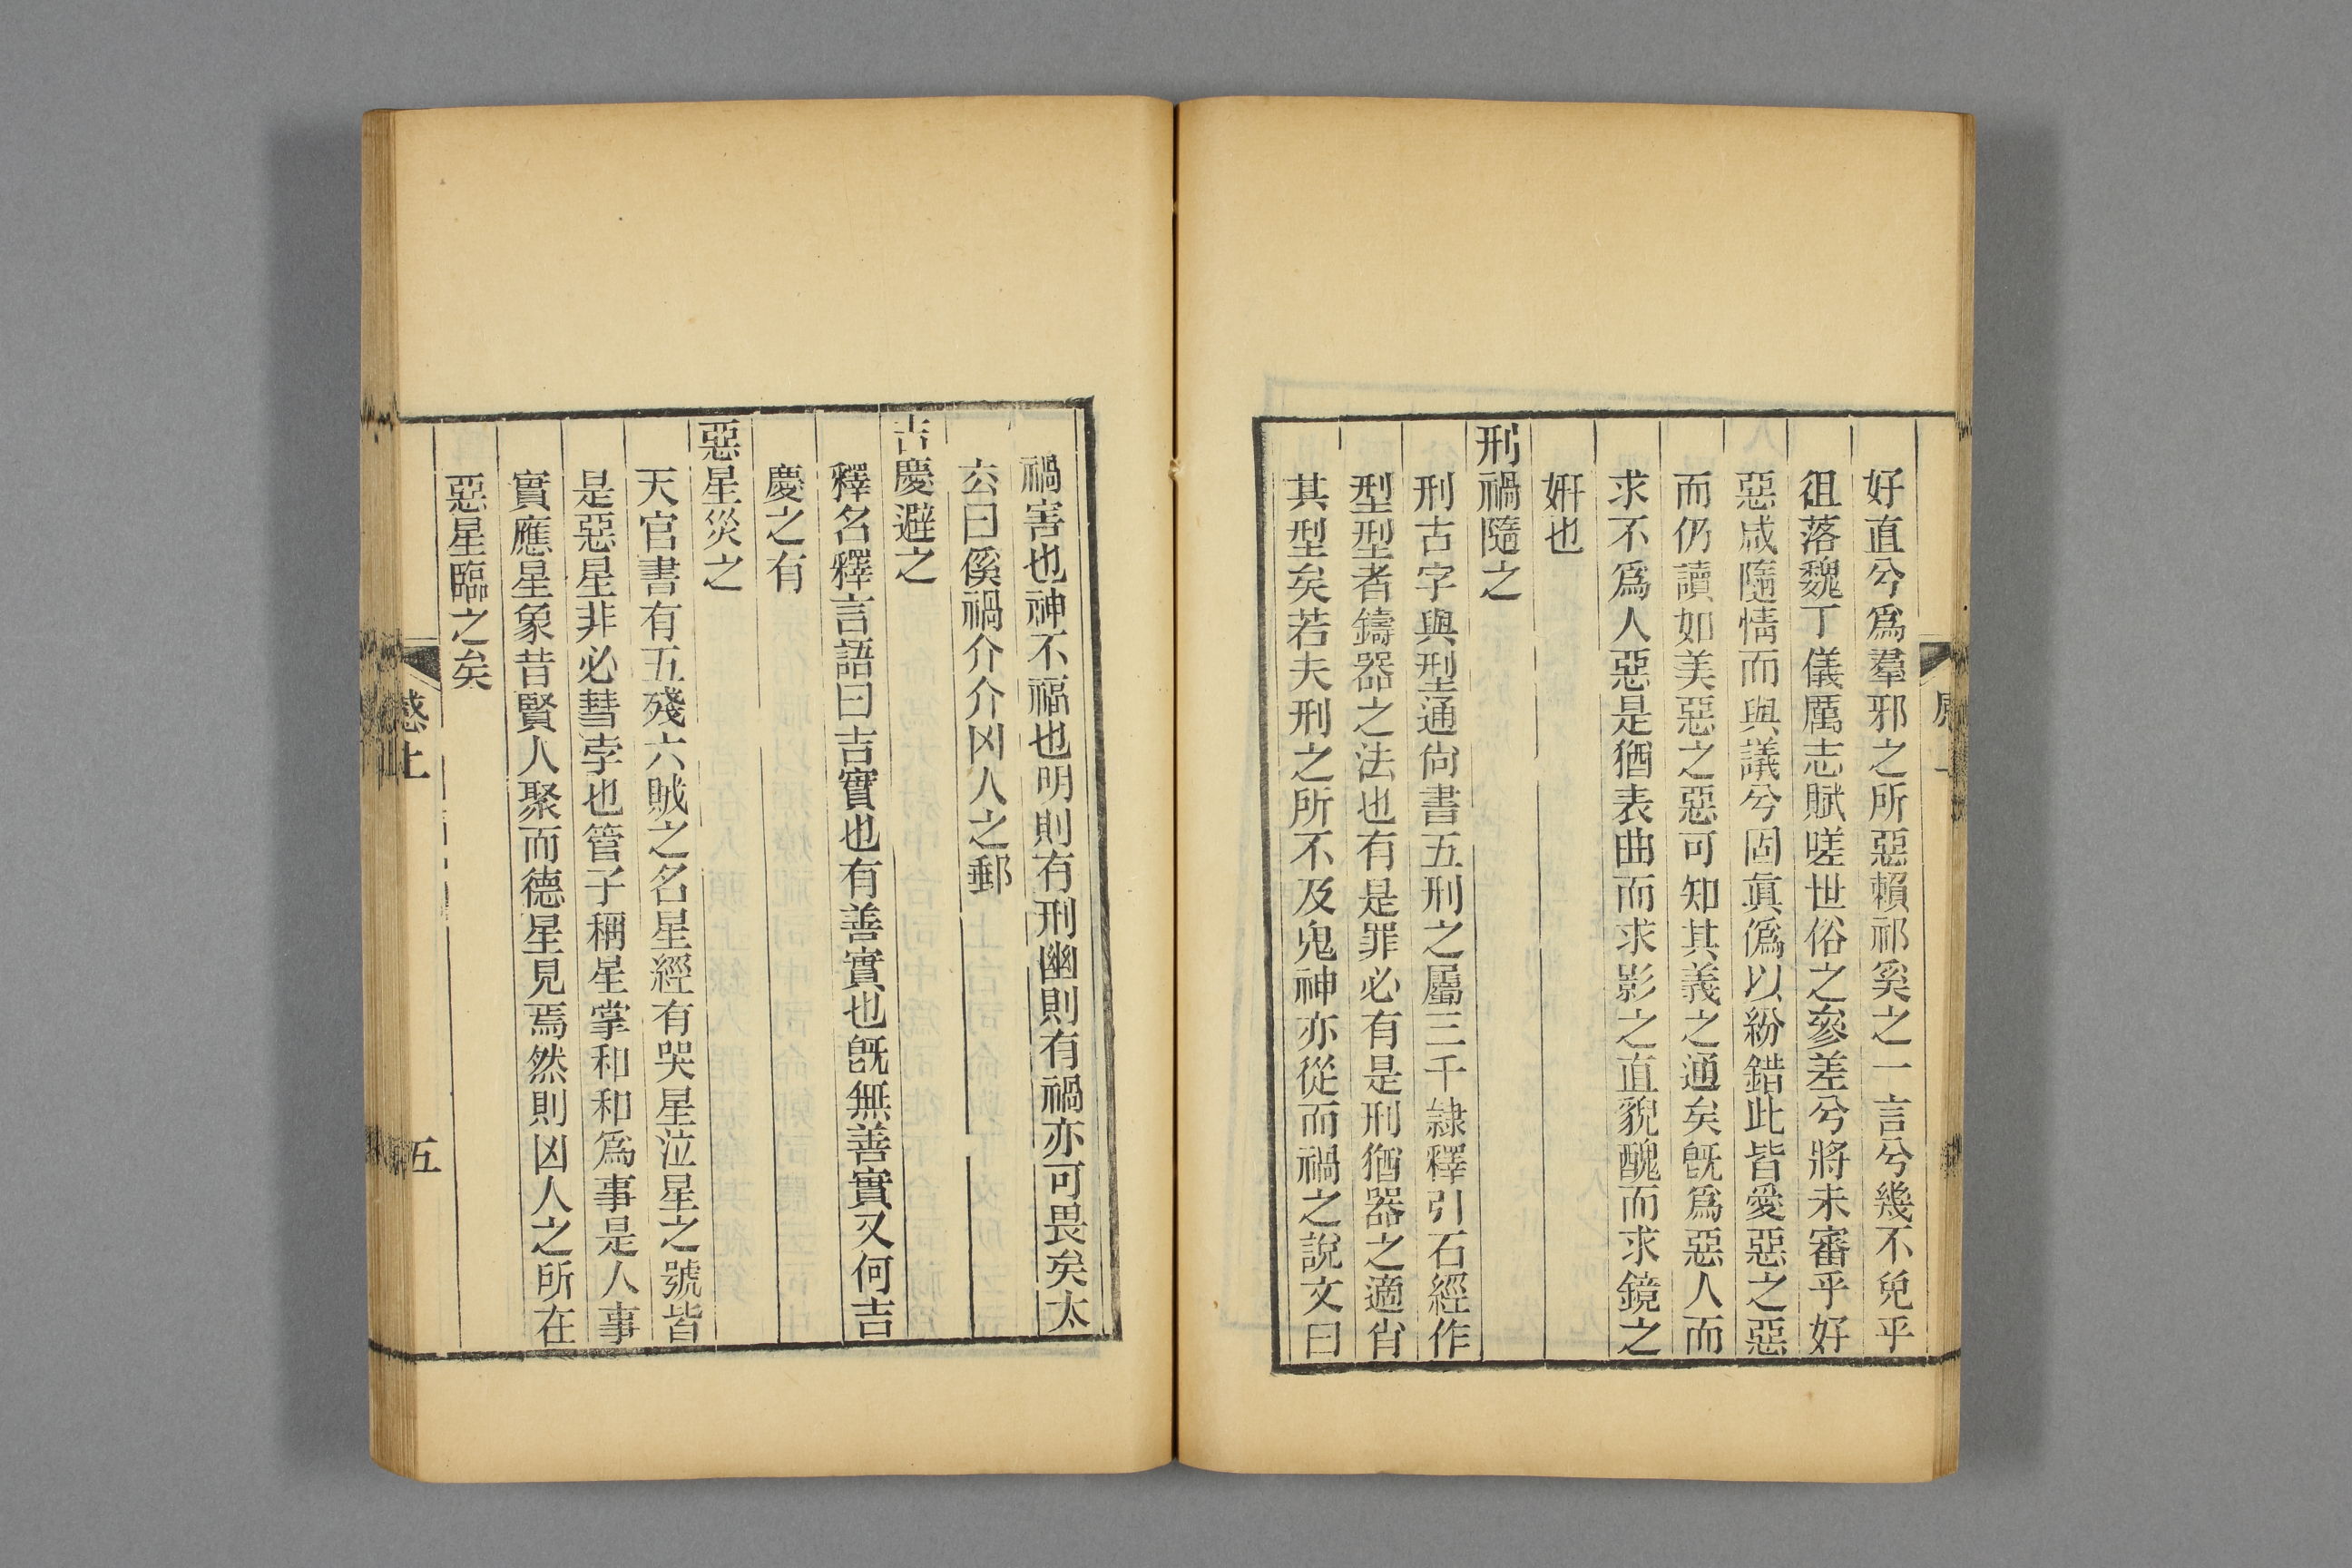 好直兮爲羣邪之所惡賴祁奚之一言兮幾不免乎
徂落魏丁儀厲志賦嗟世俗之參差兮將未審乎好
惡咸隨情而與議兮固眞僞以紛錯此皆愛惡之惡
而仍讀如美惡之惡可知其義之通矣旣爲惡人而
求不爲人惡是猶表曲而求影之直貌醜而求鏡之
姸也
刑禍隨之
刑古字與型通尙書五刑之屬三千隷釋引石經作
型型者鑄器之法也有是罪必有是刑猶器之適肖
其型矣若夫刑之所不及鬼神亦從而禍之說文曰
禍害也神不福也明則有刑幽則有禍亦可畏矣太
玄曰傒禍介介凶人之郵
吉慶避之
釋名釋言語曰吉實也有善實也旣無善實又何吉
慶之有
惡星災之
天官書有五殘六賊之名星經有哭星泣星之號皆
是惡星非必彗孛也管子稱星掌和和爲事是人事
實應星象昔賢人聚而德星見焉然則凶人之所在
惡星臨之矣
感上
五